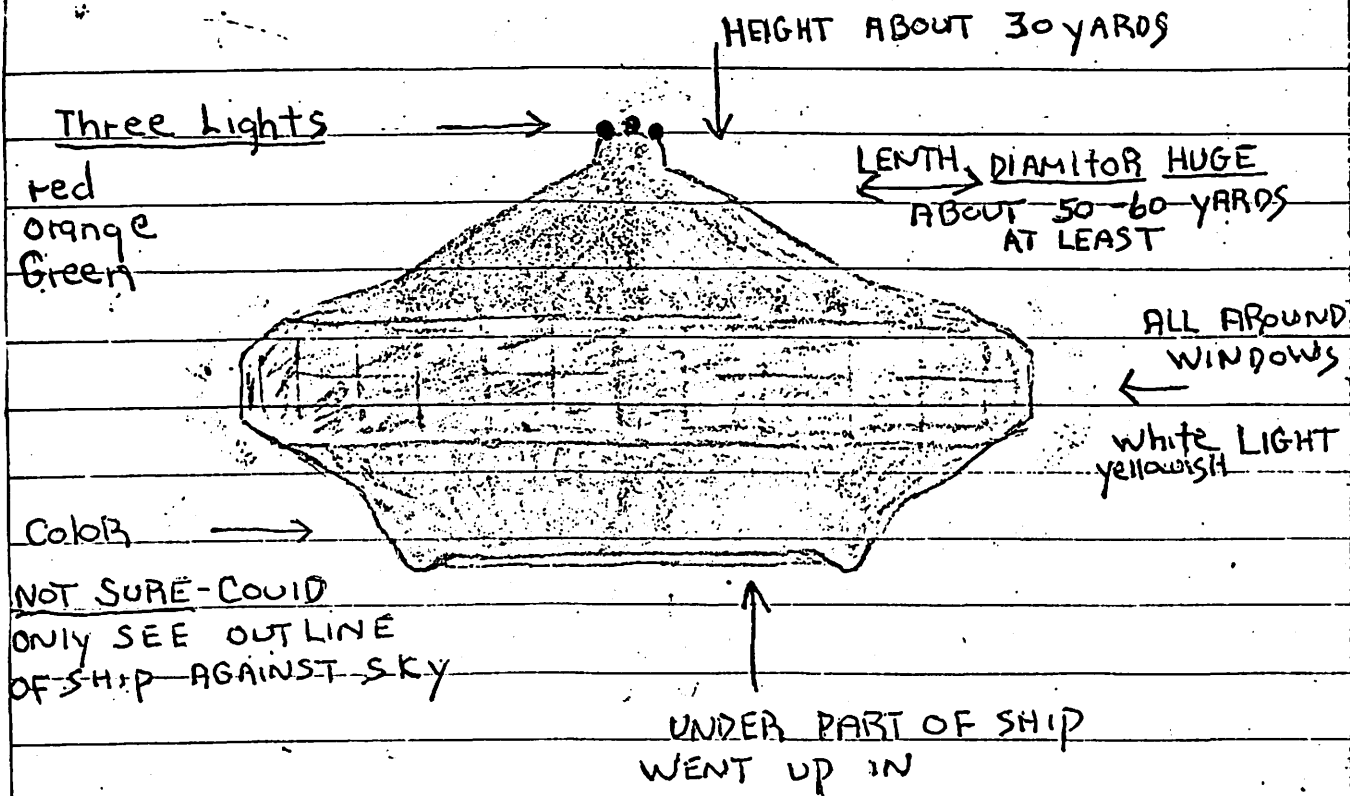 HEIGHT ABOUT 30 YARDS
Three Lights
red
orange
Green
LENTH, DIAMITOR HUGE
ABOUT 50-60 YARDS
AT LEAST
ALL AROUND
WINDOWS
white LIGHT
yellowish
Color
NOT SURE-COULD
ONLY SEE OUTLINE
OF SHIP AGAINST SKY
UNDER PART OF SHIP
WENT UP IN